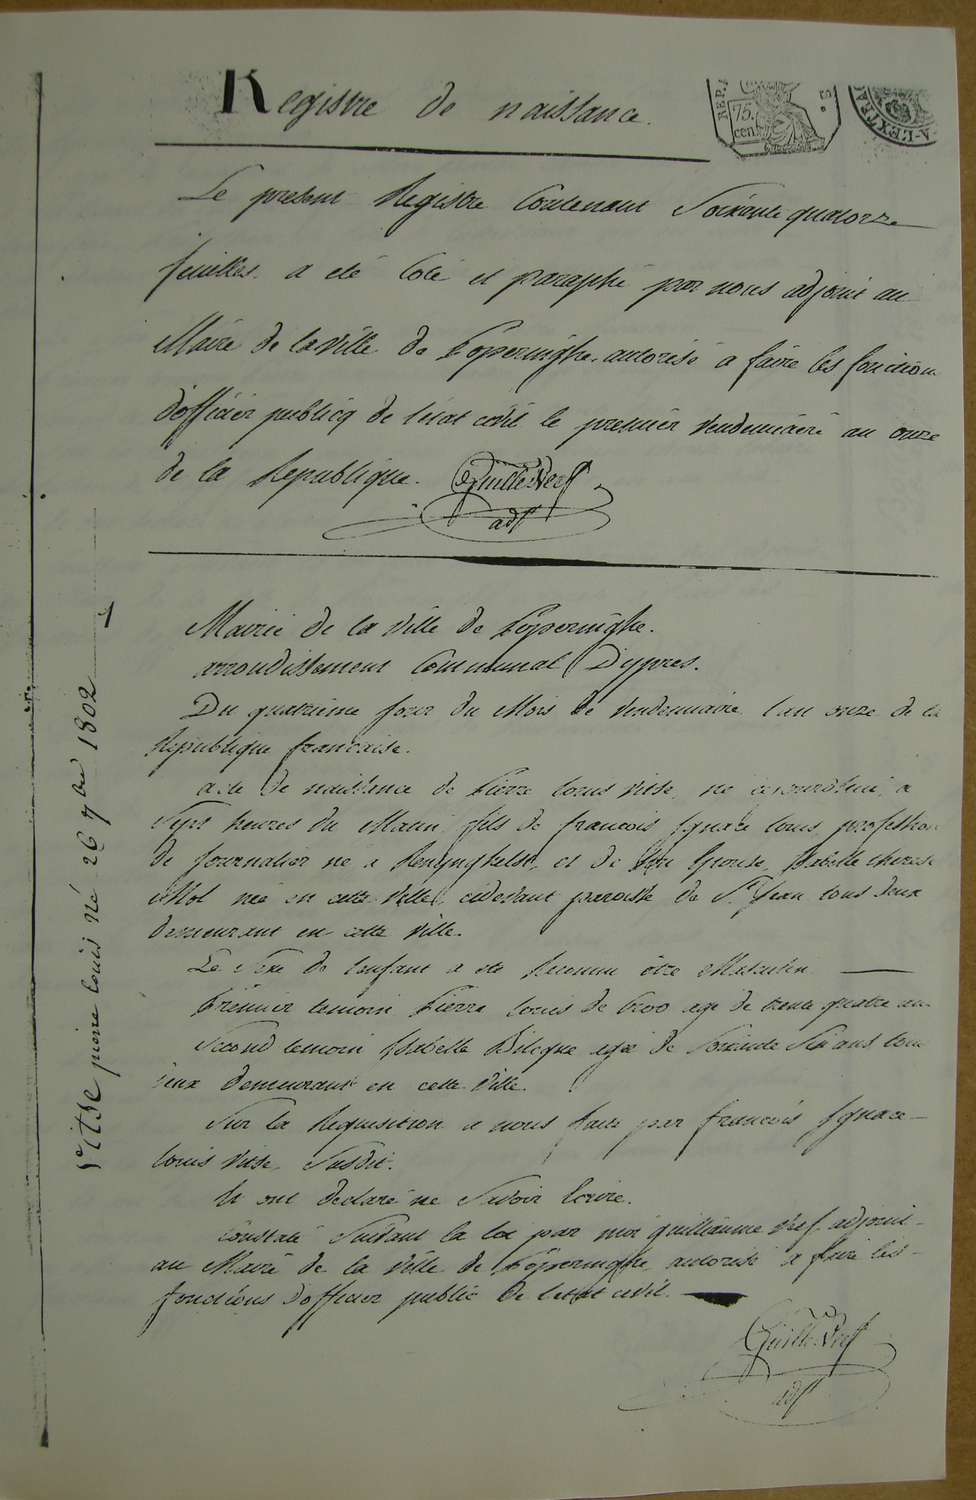 Registre de naissance.
REP.
75.
cen.
A-L'EXTRA
Le present Registre Contenant Soixante quatorze
feuilles a eté Coté et paraphé par nous adjoint au
Maire de la Ville de Poperinghe, autorisé a faire les fonction
d'officier publicq de l'etat civil le premier vendemiaire an onze
de la Republique. Guille Verf
adjt
1
Mairie de la Ville de Poperinghe.
arrondissement Communal D'ypres.
Du quatrieme jour du Mois de Vendemiaire l'an onze de la
Republique francaise.
acte de naissence de Pierre Louis Vitse, né cejourdhui, a
Sept heures du Matin, fils de francois Ignace Louis, profession
de journalier né a Renynghelst, et de Son Epouse, Isabelle therese
Mol née en cette Ville, cidevant paroisse de St Jean tous deux
demeurant en cette Ville.
Le Sexe de l'enfant a eté Reconnu être Masculin
Premier temoin Pierre Louis de agé de trente quatre ans
Second temoin Isabelle agée de Soixante Six ans tous
deux demeurant en cette Ville.
Sur la Requisition a nous faite par francois Ignace
Louis Vitse Susdit.
Ils ont declaré ne Savoir Ecrire.
Constaté Suivant la loi par moi guillaume Verf adjoint
au Maire de la Ville de Poperinghe autorisé a faire les
fonctions d'officier public de l'etat civil.
Guille Verf
adjt
Vitse pierre louis né 26 7bre 1802